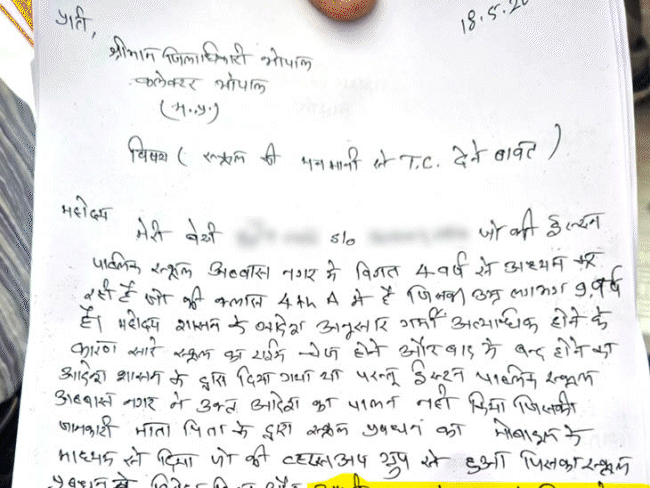 18.5.20
प्रति,
श्रीमान जिलाधिकारी भोपाल
कलेक्टर भोपाल
(म.प्र.)
विषय ( स्कूल की मनमानी से T.C. देने बावत )
महोदय
मेरी बेटी s/o जो की ईस्टन
पाब्लिक स्कूल अब्बास नगर मे विगत 4 वर्ष से अध्यन कर
रही है जो की क्लास 4th A मे है जिसकी उम्र लगभग 9 वर्ष
है। महोदय शासन के आदेश अनुसार गर्मी अत्याधिक होने के
कारण सारे स्कूल का टाईम चेंज होने और बाद मे बन्द होने का
आदेश शासन के द्वारा दिया गया था परन्तू ईस्टन पाब्लिक स्कूल
अब्बास नगर ने उक्त आदेश का पालन नही किया जिसकी
जानकारी माता पिता के द्वारा स्कूल प्रबधन को मोबाइल के
माध्यम से दिया जो की व्हाट्सअप ग्रुप से हुआ जिसका स्कूल